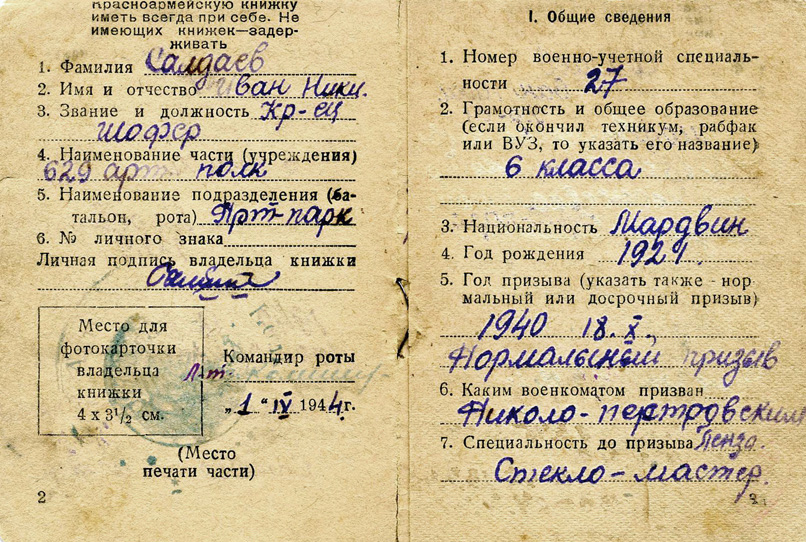 Красноармейскую книжку
иметь всегда при себе. Не
имеющих книжек—задер-
живать
1. Фамилия Салдаев
2. Имя и отчество Иван Ники.
3. Звание и должность Кр-ец
шофер
4. Наименование части (учреждения)
629 арт полк
5. Наименование подразделения (ба-
тальон, рота) Арт-парк
6. № личного знака
Личная подпись владельца книжки
Место для
фотокарточки
владельца
книжки
4 x 3½ см.
Командир роты
Л-т
„1" IV 1944 г.
(Место
печати части)
2
I. Общие сведения
1. Номер военно-учетной специаль-
ности 27
2. Грамотность и общее образование
(если окончил техникум, рабфак
или ВУЗ, то указать его название)
6 класса
3. Национальность Мардвин
4. Год рождения 1921.
5. Год призыва (указать также - нор
мальный или досрочный призыв)
1940 18.X.
Нормальный призыв
6. Каким военкоматом призван
Николо-пестровским
7. Специальность до призыва Пенза.
Стекло-мастер.
3